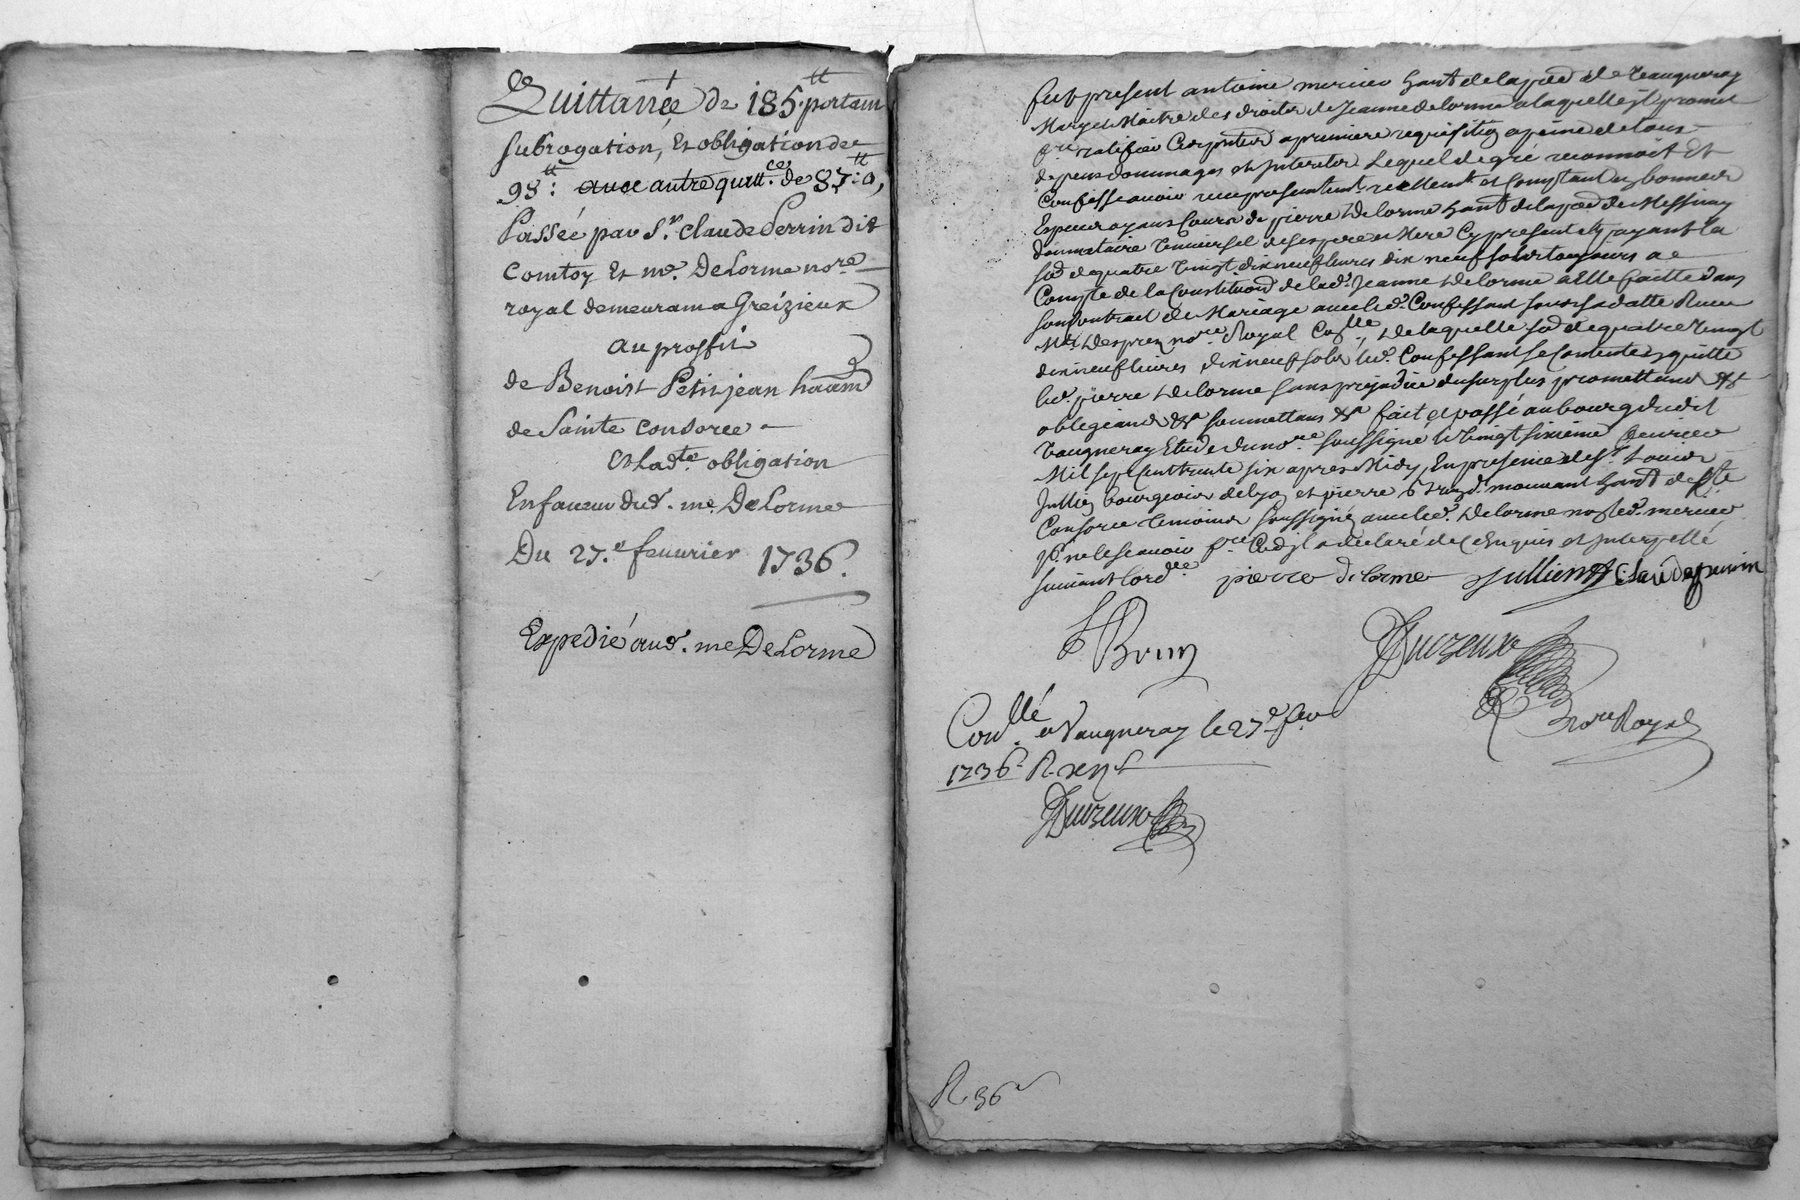 Quittance de 185.tt portant
subrogation, Et obligation de
98tt: avec autre quitt.ce de 87tt:0,
Passée par Sr. Claude Perrin dit
Comtoy Et me. DeLorme nore
royal demeurant a Greizieux
au proffit
de Benoist Petitjean habitt
de Sainte Consorce
Et ladte. obligation
En faveur dud. me. DeLorme
Du 27.e fevurier 1736.
Expedié aud. me DeLorme
fut present antoine mercier habt de la psse de Vaugneray
Mary et Maitre des droits de Jeanne delorme a laquelle il promet
fre ratifier Ces pntes a premiere requisition a peine de tous
depens dommages et Interets Lequel de gré reconnoit Et
Confesse avoir receu presentemt. reellemt et Comptant en bonnes
Especes ayans Cours de pierre Delorme habt de la psse de Messimy
donnataire Universel de ses pere et Mere Cy present et payant la
so.e de quatre Vingt dix neuf livres dix neuf sols toujours a
Compte de la Constitution de lad. Jeanne Delorme a Elle faitte dans
son Contract de Mariage avec led. Confessant sous sa datte Receu
Me Desprez nore. Royal De laquelle so.e de quatre Vingt
dix neuf livres dix neuf sols led. Confessant se Contente en quitte
led. pierre Delorme sans prejudice du surplus promettant &a
obligeant &a soumettant &a fait et passé au bourg dudit
Vaugneray Etude du nore soussigné le Vingt sixieme fevrier
Mil sept Cent trente six apres Midy, En presence de Sr.
Jullien bourgeois de lyon et pierre habt de Ste
Consorce temoins soussignés avec led. Delorme non led. mercier
p. ne le scavoir fre Ce dit a declaré de Ce Enquis et Interpellé
suivant lord.ce pierre delorme Jullien Claude perrin
Brun
Ducreux
nore Royal
Conllé a Vaugneray le 27e fev
1736 R.
Ducreux
R. 36s